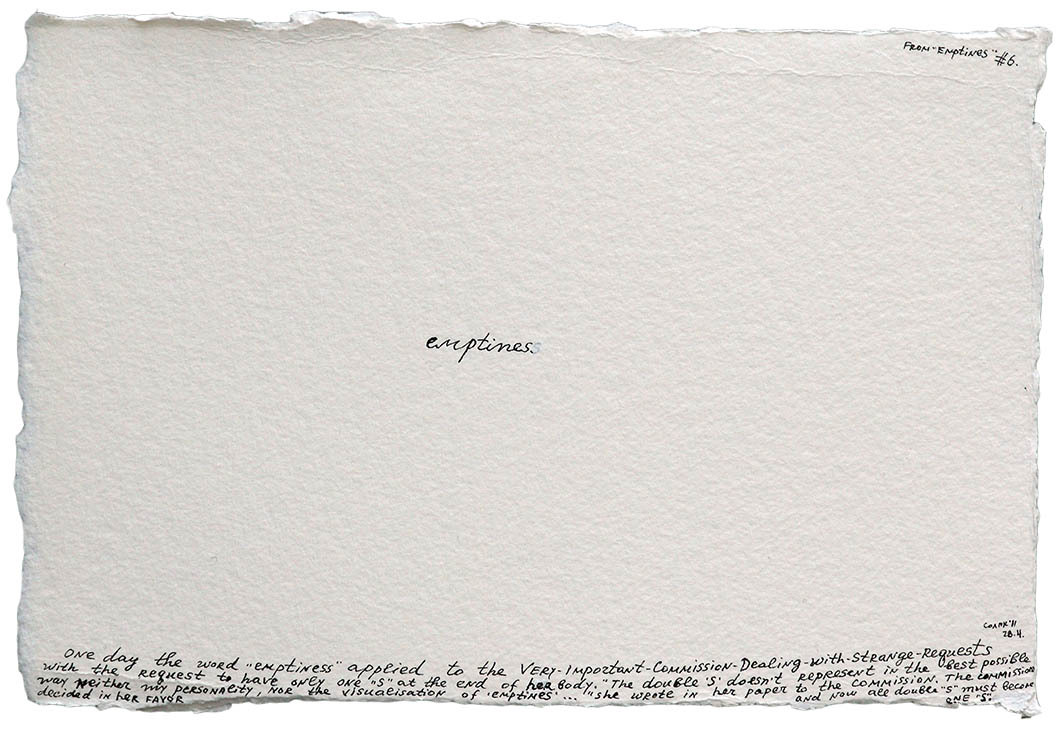 FROM "Emptines" #6.
emptiness
'11
28.4.
One day the word "emptiness" applied to the Very-Important-Commission-Dealing-with-Strange-Requests
with the request to have only one "S" at the end of her body. "The double 'S' doesn't represent in the best possible
way neither my personality, nor the visualisation of 'emptines'"... "she wrote in her paper to the commission. The commission
decided in her favor and now all double "S" must become
one "S".